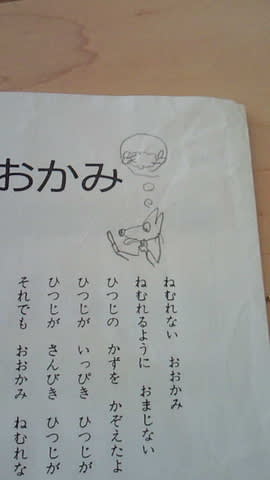 おかみ
ねむれない　おおかみ
ねむれるように　おまじない
ひつじの　かずを　かぞえたよ
ひつじが　いっぴき　ひつじが
ひつじが　さんびき　ひつじが
それでも　おおかみ　ねむれな